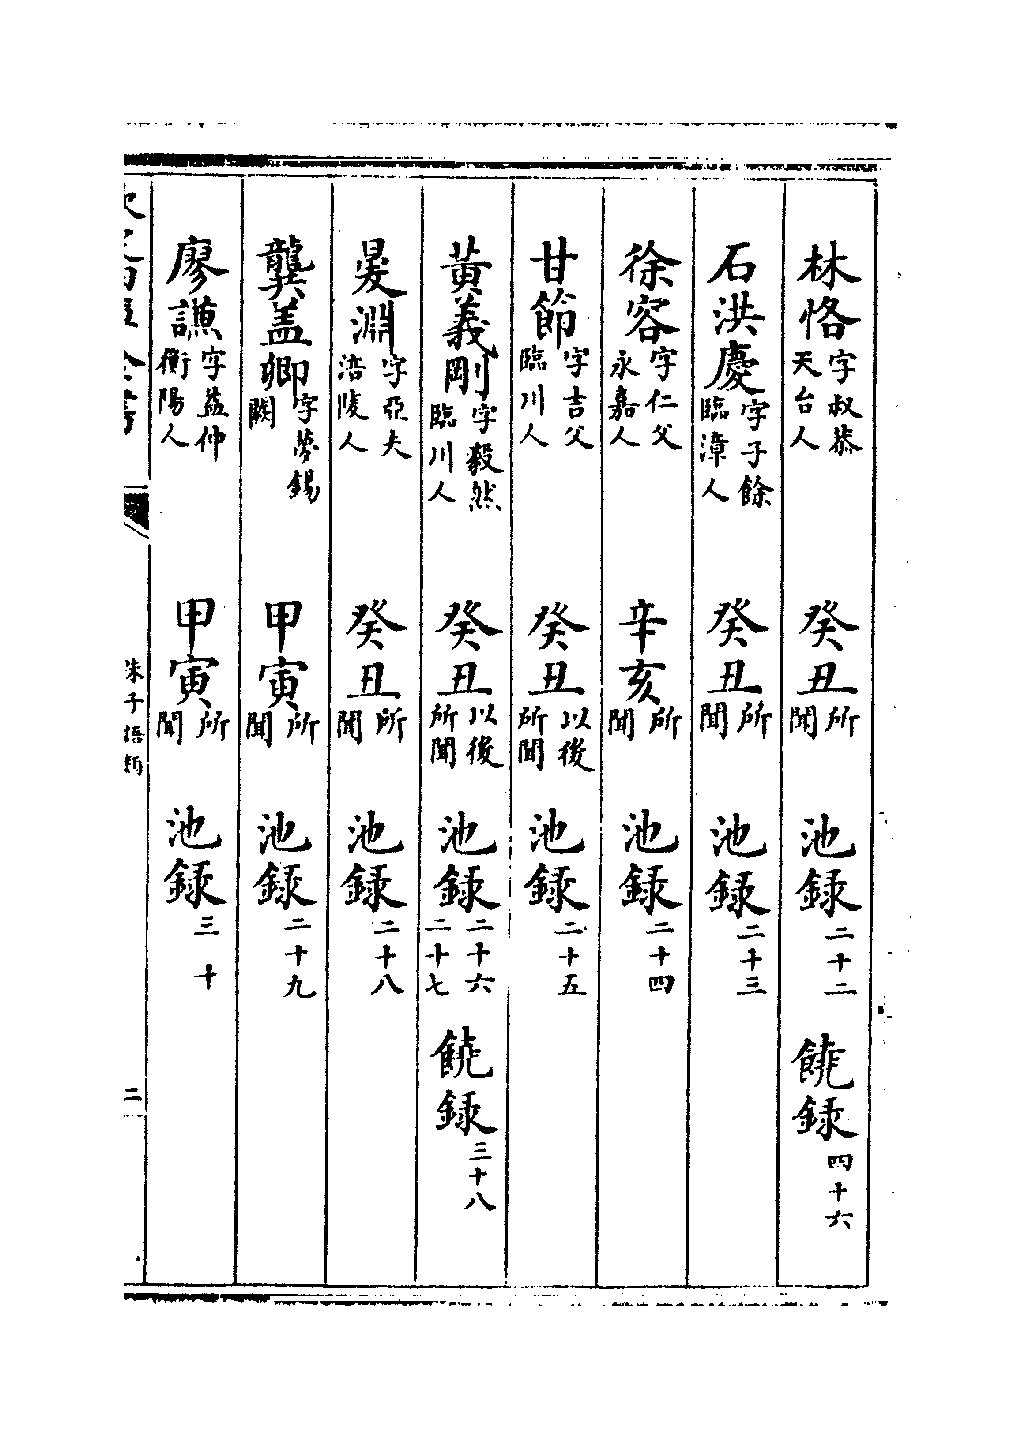 林恪字叔恭天台人 癸丑所聞 池錄二十二 饒錄四十六
石洪慶字子餘臨漳人 癸丑所聞 池錄二十三
徐容字仁父永嘉人 辛亥所聞 池錄二十四
甘節字吉父臨川人 癸丑以後所聞 池錄二十五
黃義剛字毅然臨川人 癸丑以後所聞 池錄二十六二十七 饒錄三十八
㬊淵字亞夫涪陵人 癸丑所聞 池錄二十八
龔盖卿字夢錫闕 甲寅所聞 池錄二十九
廖謙字益仲衡陽人 甲寅所聞 池錄三十
朱子語類 二